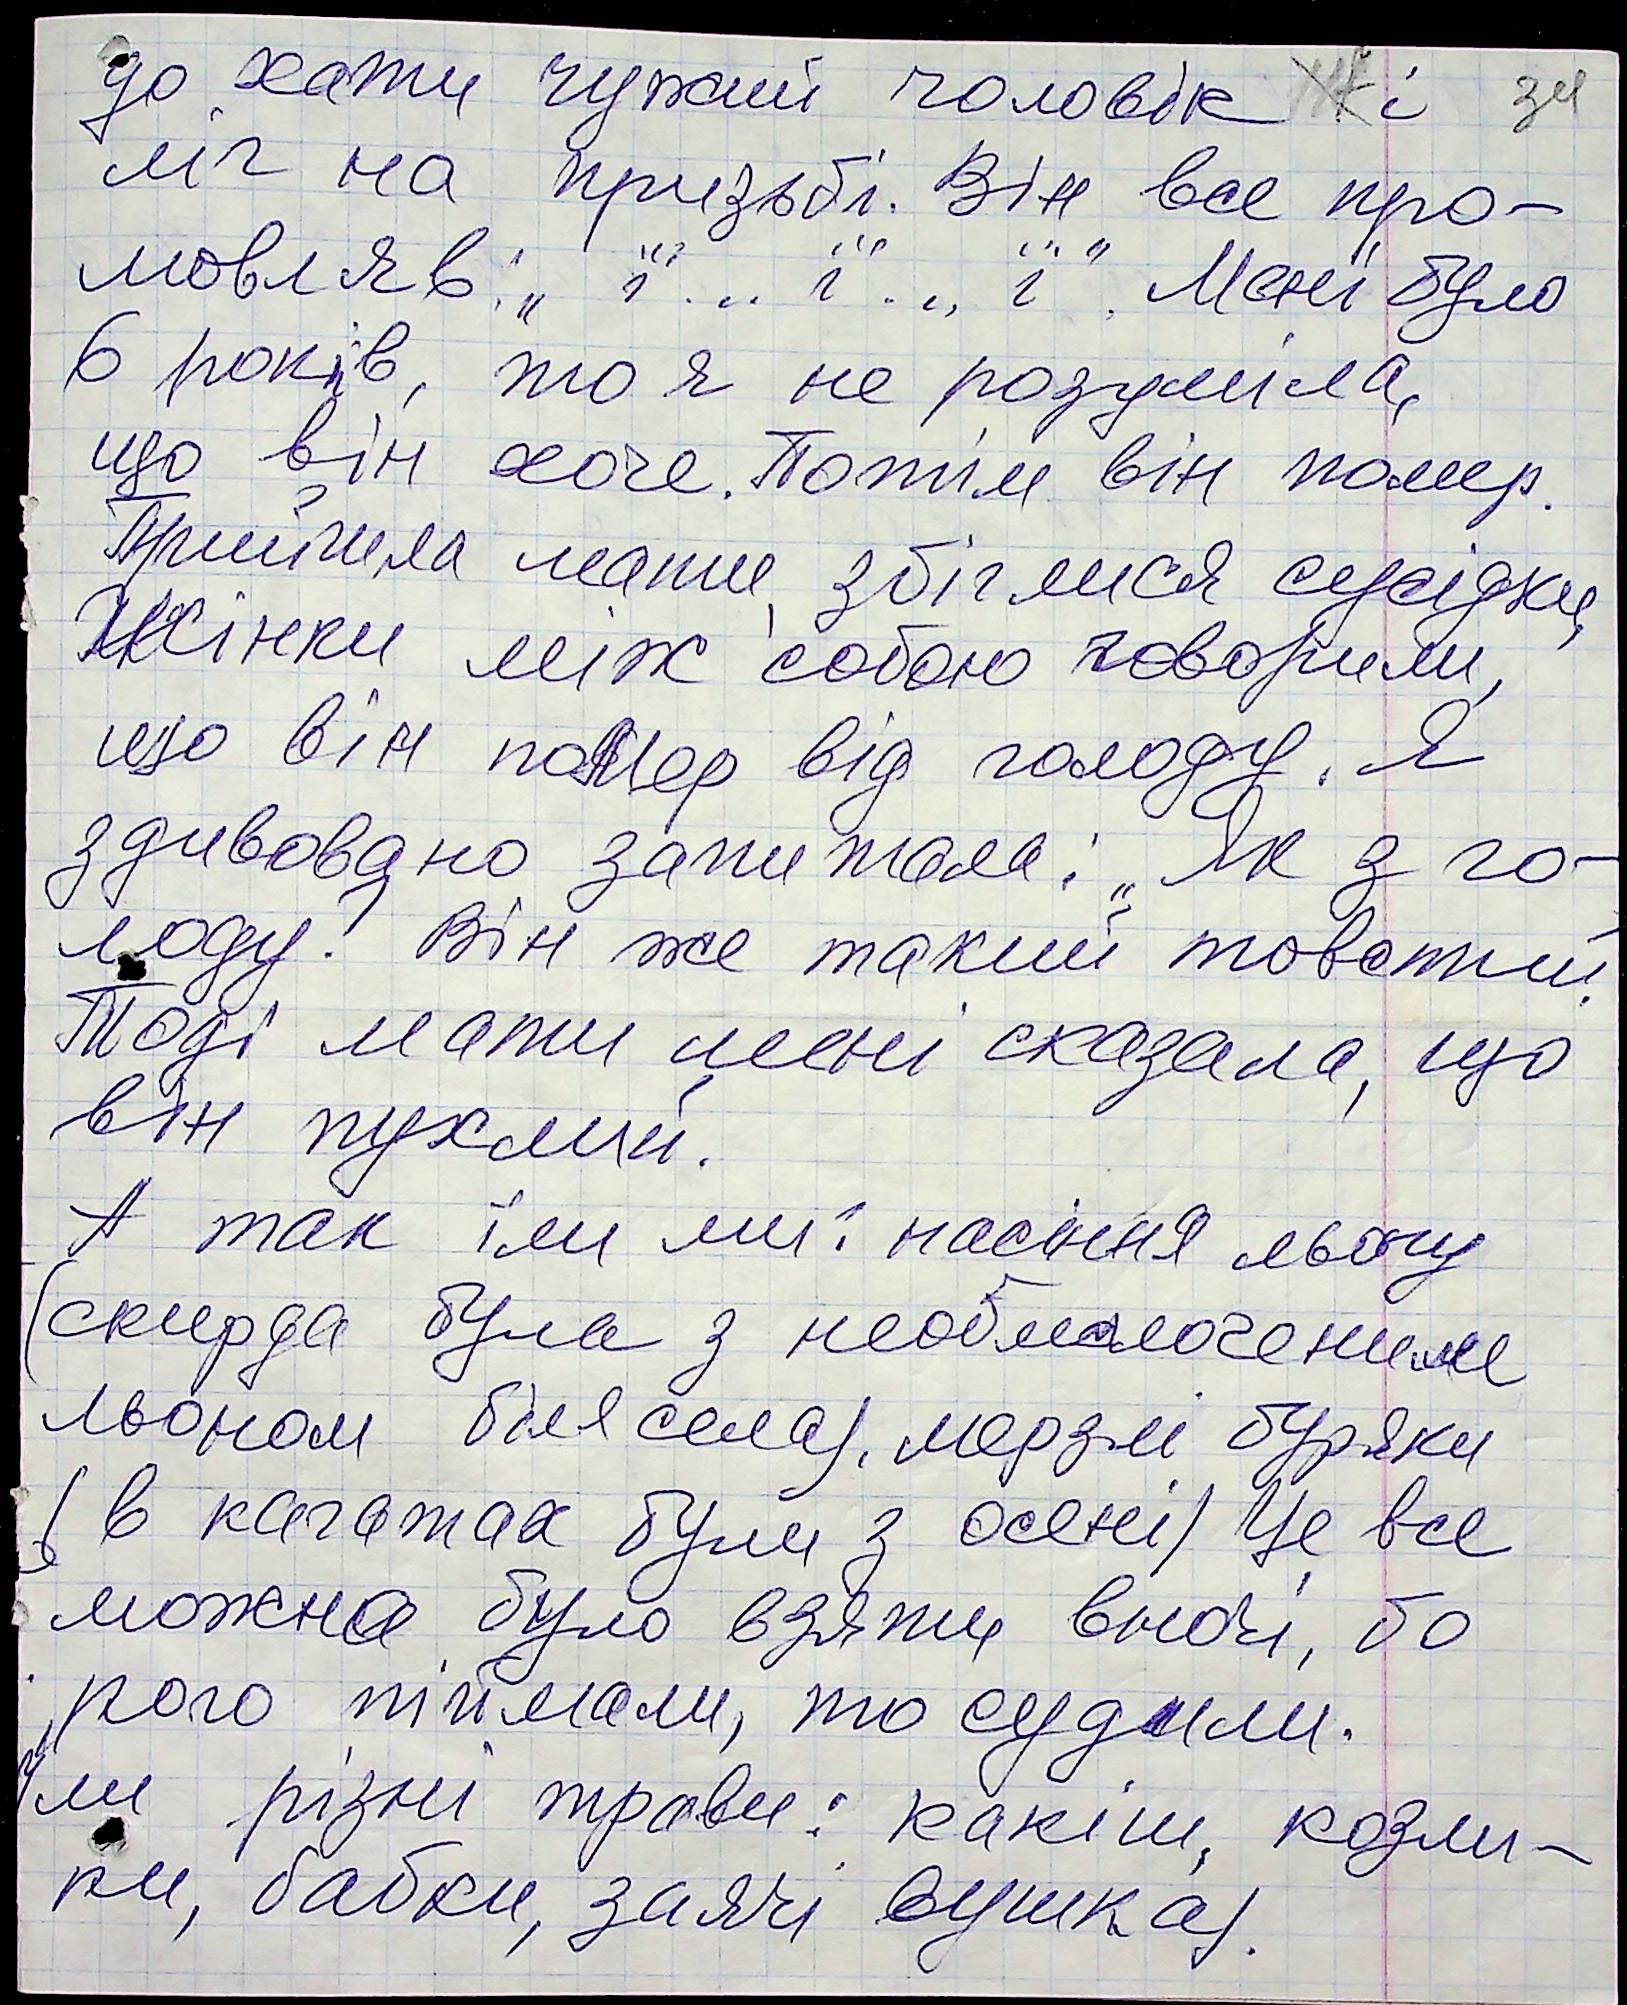 до хати чужий чоловік і 34
ліг на призьбі. Він все про-
мовляв: „ї... ї... ї". Мені було
6 років, то я не розуміла,
що він хоче. Потім він помер.
Прийшла мати, збіглися сусідки,
Жінки між собою говорили,
що він помер від голоду. Я
здивовано запитала: „Як з го-
лоду? Він же такий товстий.
Тоді мати мені сказала, що
він пухлий.
А так їли ми: насіння льону
(скирда була з необмолоченим
льоном біля села), мерзлі буряки
(в кагатах були з осені) Це все
можна було взяти вночі, бо
кого піймали, то судили.
Їли різні трави: какіш, козли-
ки, бабки, заячі вушка).